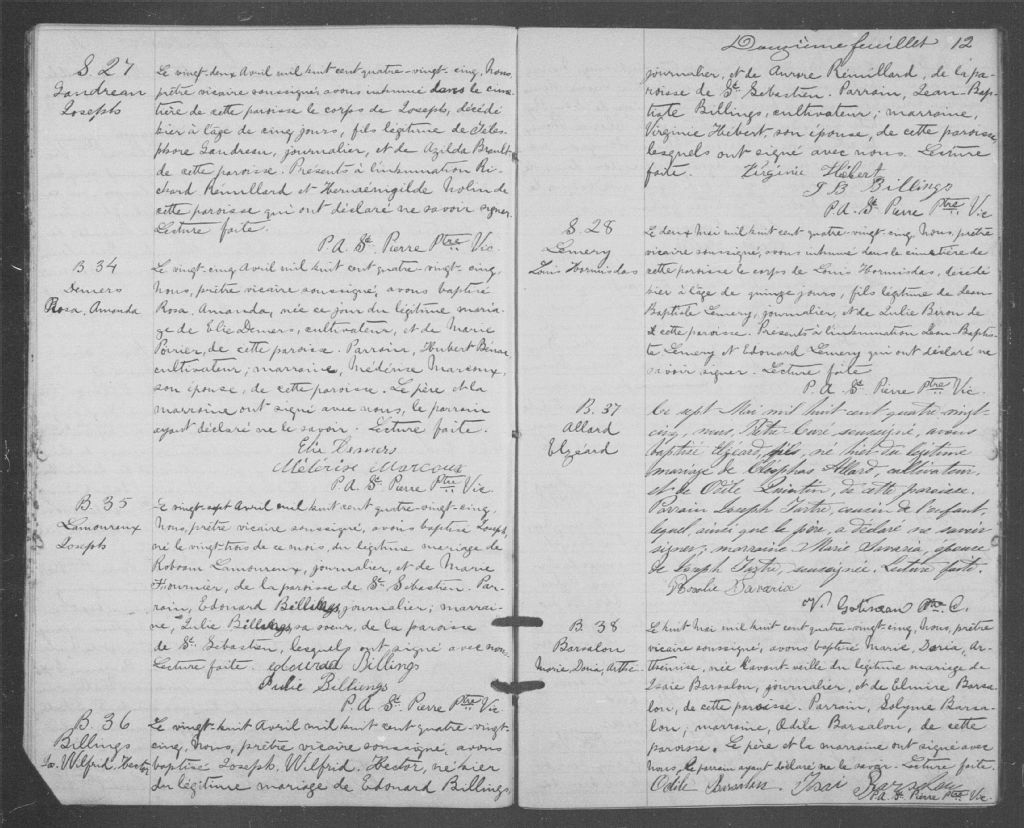 S. 27
Gaudreau
Joseph
Le vingt-deux Avril mil huit cent quatre-vingt-cinq, Nous,
prêtre vicaire soussigné, avons inhumé dans le cime-
tière de cette paroisse le corps de Joseph, décédé
hier à l'âge de cinq jours, fils légitime de Téles-
phore Gaudreau, journalier, et de Azilda Breult
de cette paroisse. Présents à l'inhumation Ri-
chard Rémillard et Herménégilde Nolin de
cette paroisse qui ont déclaré ne savoir signer.
Lecture faite.
P. A. St. Pierre Ptre Vic.
B. 34
Demers
Rosa, Amanda
Le vingt-cinq Avril mil huit cent quatre-vingt-cinq,
Nous, prêtre vicaire soussigné, avons baptisé
Rosa, Amanda, née ce jour du légitime maria-
ge de Elie Demers, cultivateur, et de Marie
Poirier, de cette paroisse. Parrain, Hubert
cultivateur; marraine, Médérise Marcoux,
son épouse, de cette paroisse. Le père et la
marraine ont signé avec nous, le parrain
ayant déclaré ne le savoir. Lecture faite.
Elie Demers
Médérise Marcoux
P. A. St. Pierre Ptre Vic.
B. 35
Lamoureux
Joseph
Le vingt-sept Avril mil huit cent quatre-vingt-cinq,
Nous, prêtre vicaire soussigné, avons baptisé Joseph,
né le vingt-trois de ce mois, du légitime mariage de
Roboam Lamoureux, journalier, et de Marie
Fournier, de la paroisse de St. Sébastien. Par-
rain, Edouard Billings, journalier; marrai-
ne, Julie Billings, sa soeur, de la paroisse
de St. Sébastien, lesquels ont signé avec nous.
Lecture faite. edouard Billings
Julie Billings
P. A. St. Pierre Ptre Vic
B. 36
Billings
Jos. Wilfrid. Hector
Le vingt-huit Avril mil huit cent quatre-vingt-
cinq, Nous, prêtre vicaire soussigné, avons
baptisé Joseph. Wilfrid. Hector, né hier
du légitime mariage de Edouard Billings,
Douzième feuillet 12
journalier, et de Aurore Rémillard, de la pa-
roisse de St. Sébastien. Parrain, Jean-Bap-
tiste Billings, cultivateur; marraine,
Virginie Hébert, son épouse, de cette paroisse,
lesquels ont signé avec nous. Lecture
faite. Virginie Hébert
J B Billings
P. A. St. Pierre Ptre. Vic
S. 28
Lemery
Louis Hormisdas
Le deux Mai mil huit cent quatre-vingt-cinq, Nous, prêtre
vicaire soussigné, avons inhumé dans le cimetière de
cette paroisse le corps de Louis Hormisdas, décédé
hier à l'âge de quinze jours, fils légitime de Jean
Baptiste Lemery, journalier, et de Julie Biron de
cette paroisse. Présents à l'inhumation Jean-Baptis-
te Lemery et Edouard Lemery qui ont déclaré ne
savoir signer. Lecture faite
P. A. St. Pierre Ptre Vic.
B. 37
Allard
Elzéard
Ce sept Mai mil huit cent quatre-vingt-
cinq, nous, Prêtre Curé soussigné, avons
baptisé Elzéard, fils, né hier du légitime
mariage de Cléophas Allard, cultivateur,
et de Odile Quintin, de cette paroisse.
Parrain Joseph Tartre, cousin de l'enfant,
lequel ainsi que le père a déclaré ne savoir
signer; marraine Marie Savaria, épouse
de Joseph Tartre, soussignée. Lecture faite.
Rosalie Savaria
V. Gatineau Ptre C.
B. 38
Barsalou
Marie, Doria, Arthé.
Le huit Mai mil huit cent quatre-vingt-cinq, Nous, prêtre
vicaire soussigné, avons baptisé Marie, Doria, Ar-
thémise, née l'avant-veille du légitime mariage de
Isaïe Barsalou, journalier, et de Elmire Barsa-
lou, de cette paroisse. Parrain, Solyme Barsa-
lou; marraine, Odile Barsalou, de cette
paroisse. Le père et la marraine ont signé avec
nous, le parrain ayant déclaré ne le savoir. Lecture faite.
Odile Barsalou Isai Barsalou
P. A. St. Pierre Ptre Vic.